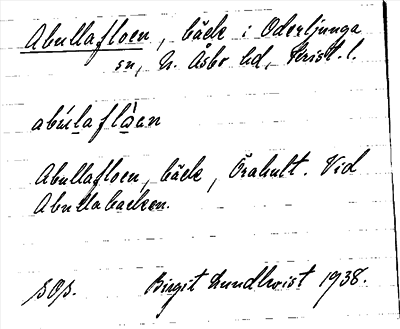 Abullafloen, bäck i Oderljunga
sn, N. Åsbo hd, Krist. l.
abúlaflȧ̀en
Abullafloen, bäck, Örahult. Vid
Abullabacken.
sOp. Birgit Lundkvist 1938.